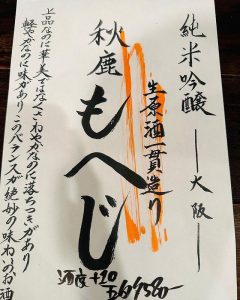 純米吟醸 ―大阪―
生原酒一貫造り
秋鹿
もへじ
酒度+10
上品なのに華美ではなくさわやかなのに落ちつきがあり
軽やかなのに味があり このバランスが絶妙の味わいのお酒